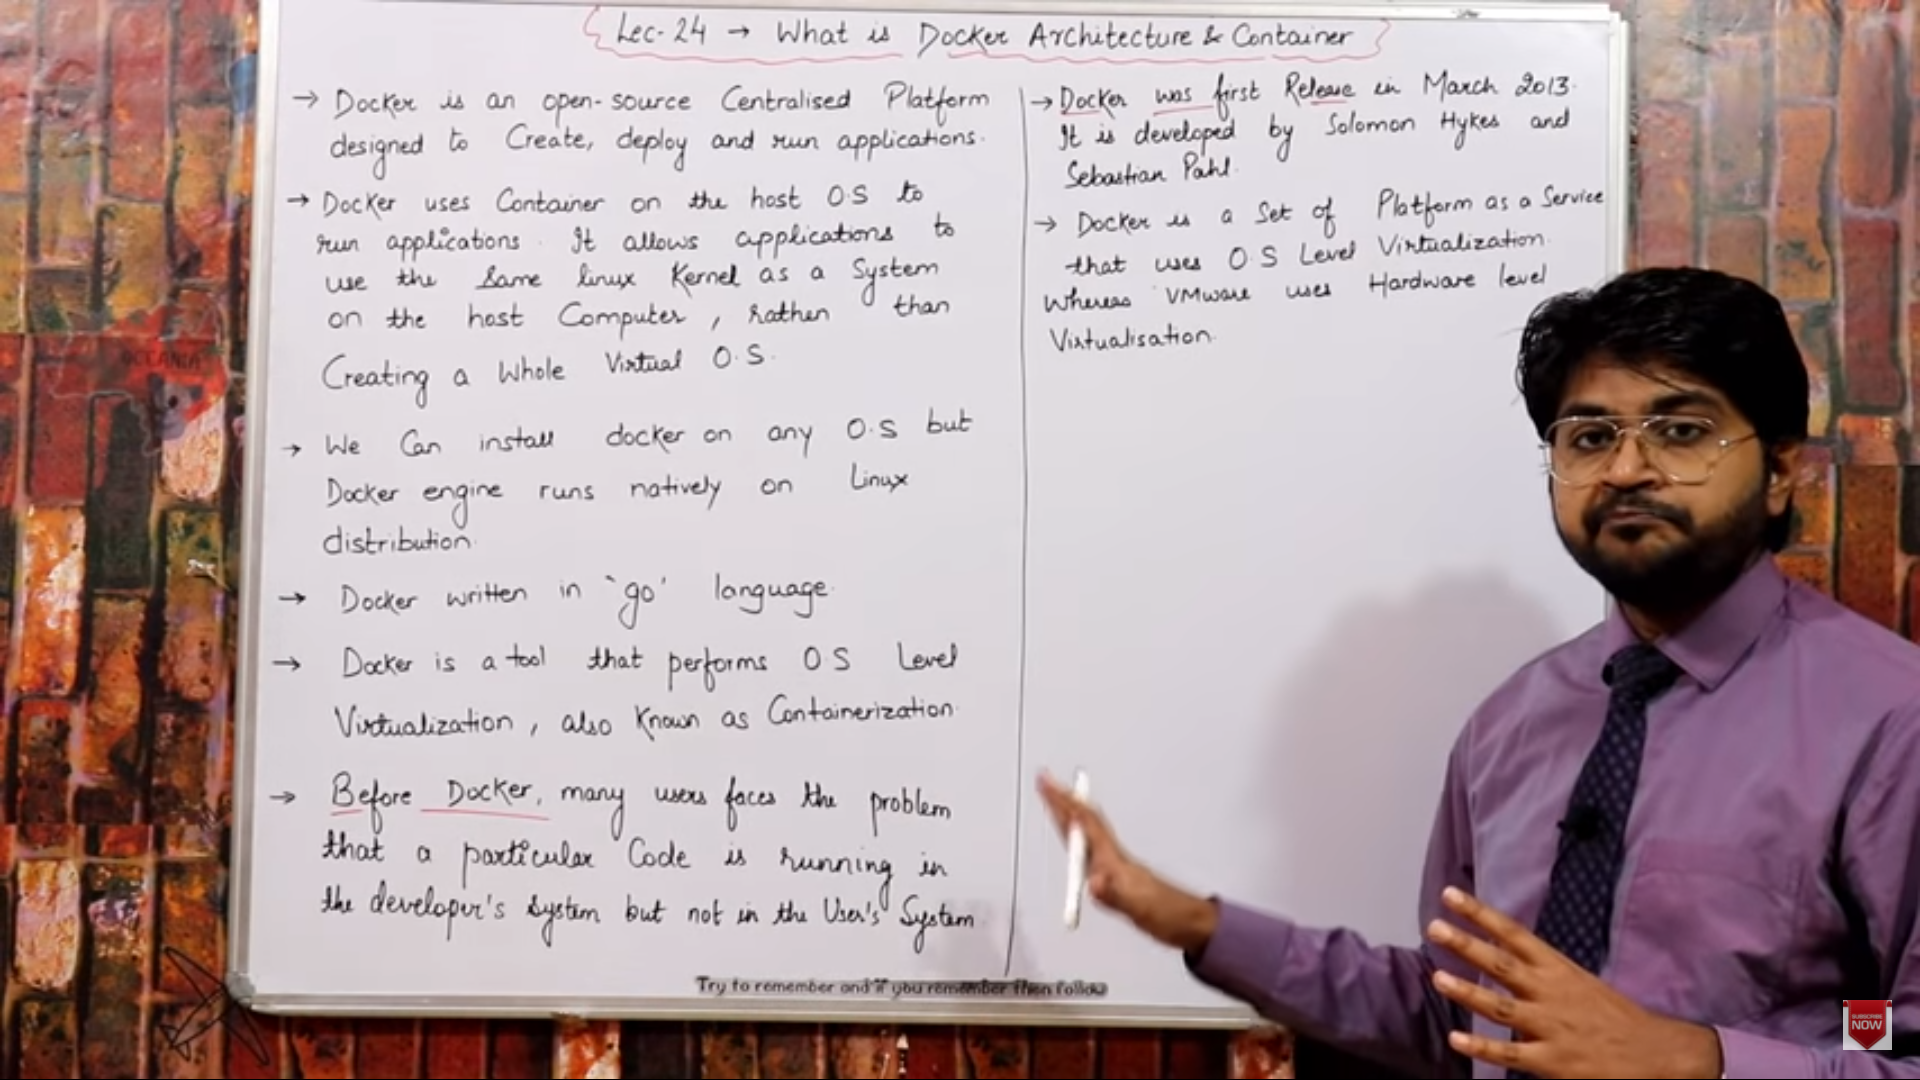 Lec-24 → What is Docker Architecture & Container
→ Docker is an open-source Centralised Platform
designed to Create, deploy and run applications.
→ Docker uses Container on the host O.S to
run applications. It allows applications to
use the same linux Kernel as a System
on the host Computer, rather than
Creating a whole Virtual O.S.
→ We Can install docker on any O.S but
Docker engine runs natively on Linux
distribution.
→ Docker written in 'go' language.
→ Docker is a tool that performs O.S Level
Virtualization, also known as Containerization.
→ Before Docker, many users faces the problem
that a particular Code is running in
the developer's system but not in the User's System.
→ Docker was first Release in March 2013.
It is developed by Solomon Hykes and
Sebastian Pahl.
→ Docker is a Set of Platform as a Service
that uses O.S Level Virtualization
whereas VMware uses Hardware level
Virtualisation.
Try to remember and if you remember then follow
SUBSCRIBE
NOW